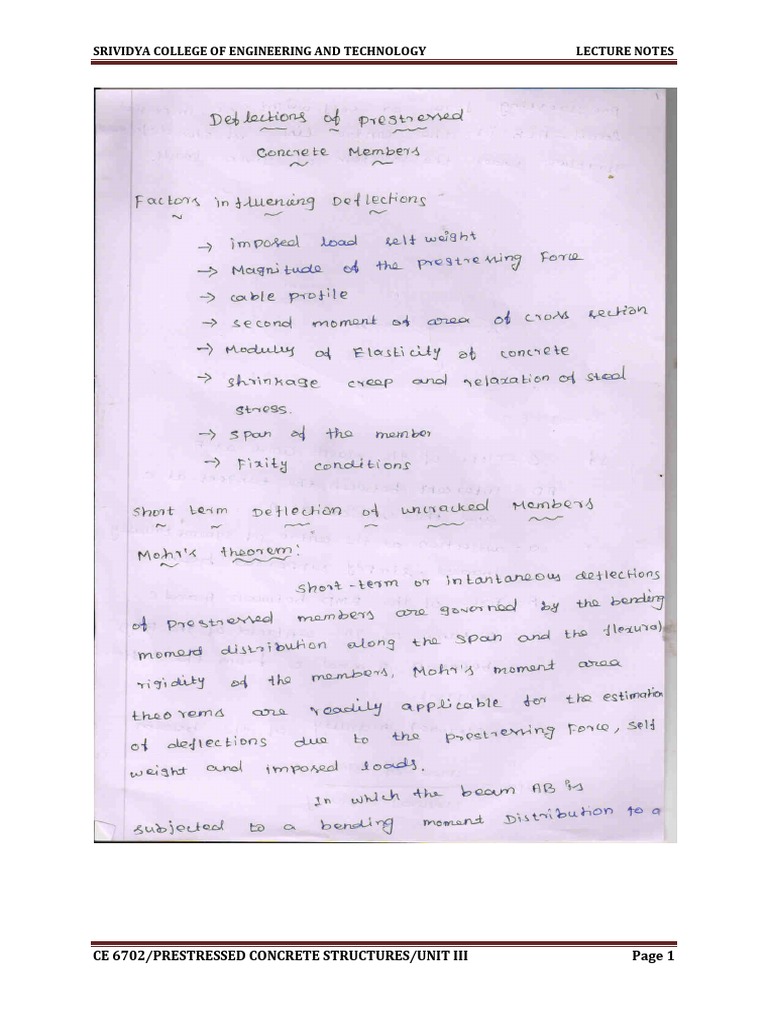 SRIVIDYA COLLEGE OF ENGINEERING AND TECHNOLOGY LECTURE NOTES
1
Deflections of prestressed
Concrete Members
Factors influencing Deflections
→ imposed load self weight
→ Magnitude of the prestressing Force
→ cable profile
→ second moment of area of cross section
→ Modulus of Elasticity of concrete
→ shrinkage creep and relaxation of steel
stress.
→ span of the member
→ Fixity conditions
Short term Deflection of uncracked Members
Mohr's theorem:
Short-term or intantaneous deflections
of prestressed members are governed by the bending
moment distribution along the span and the flexural
rigidity of the members, Mohr's moment area
theorems are readily applicable for the estimation
of deflections due to the prestressing Force, self
weight and imposed loads.
In which the beam AB is
subjected to a bending moment Distribution to a
CE 6702/PRESTRESSED CONCRETE STRUCTURES/UNIT III Page 1